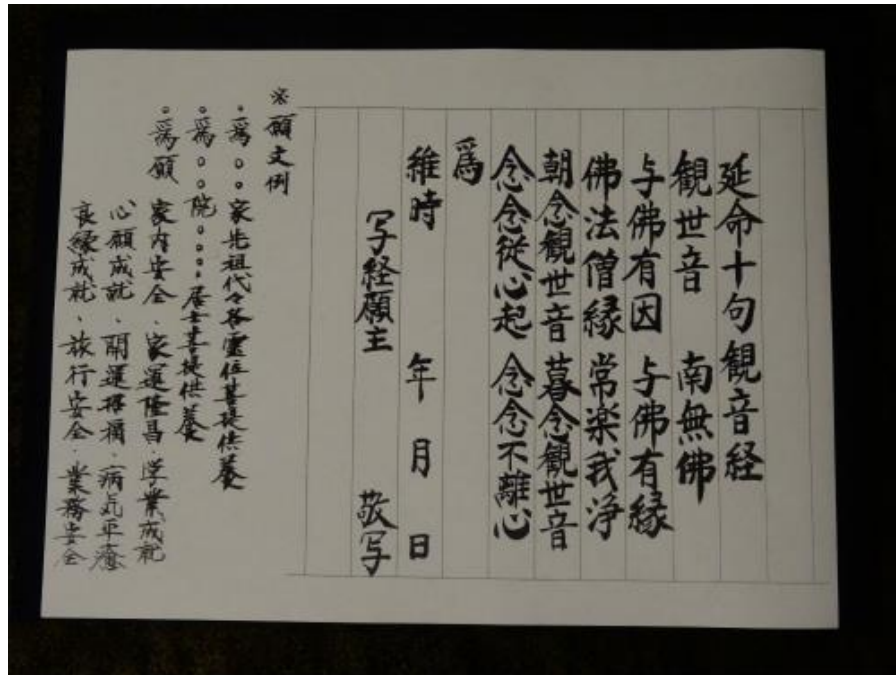 延命十句観音経
観世音 南無佛
与佛有因 与佛有縁
佛法僧縁 常楽我浄
朝念観世音 暮念観世音
念念従心起 念念不離心
為
維時 年 月 日
写経願主 敬写
※願文例
・為○○家先祖代々各霊位菩提供養
・為○○院○○○○居士菩提供養
・為願 家内安全、家運隆昌、学業成就
心願成就、開運招福、病気平癒
良縁成就、旅行安全、業務安全